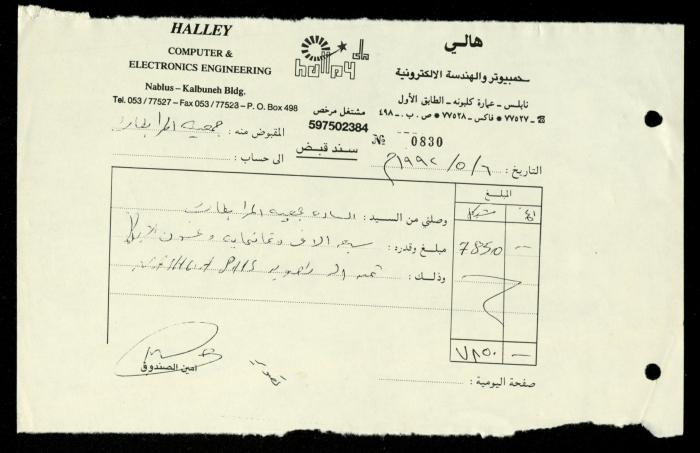 HALLEY
COMPUTER &
ELECTRONICS ENGINEERING
Nablus – Kalbuneh Bldg.
Tel. 053 / 77527 – Fax 053 / 77528 – P. O. Box 498
halley
هالي
كمبيوتر والهندسة الالكترونية
نابلس - عمارة كلبونه - الطابق الأول
☎ ٧٧٥٢٧ - فاكس ٧٧٥٢٨ * ص . ب . ٤٩٨
مشتغل مرخص
597502384
№ 0830
سند قبض
المقبوض منه : جمعية المرابطات
الى حساب :
التاريخ : ٦ / ٥ / ١٩٩٢م
المبلغ
شيكل
وصلني من السيد : السادة جمعية المرابطات
مبلغ وقدره : سبعة الاف وثمانمائة وخمسون 7850 —
وذلك : ثمن الة تصوير
٧٨٥٠ —
امين الصندوق
صفحة اليومية :